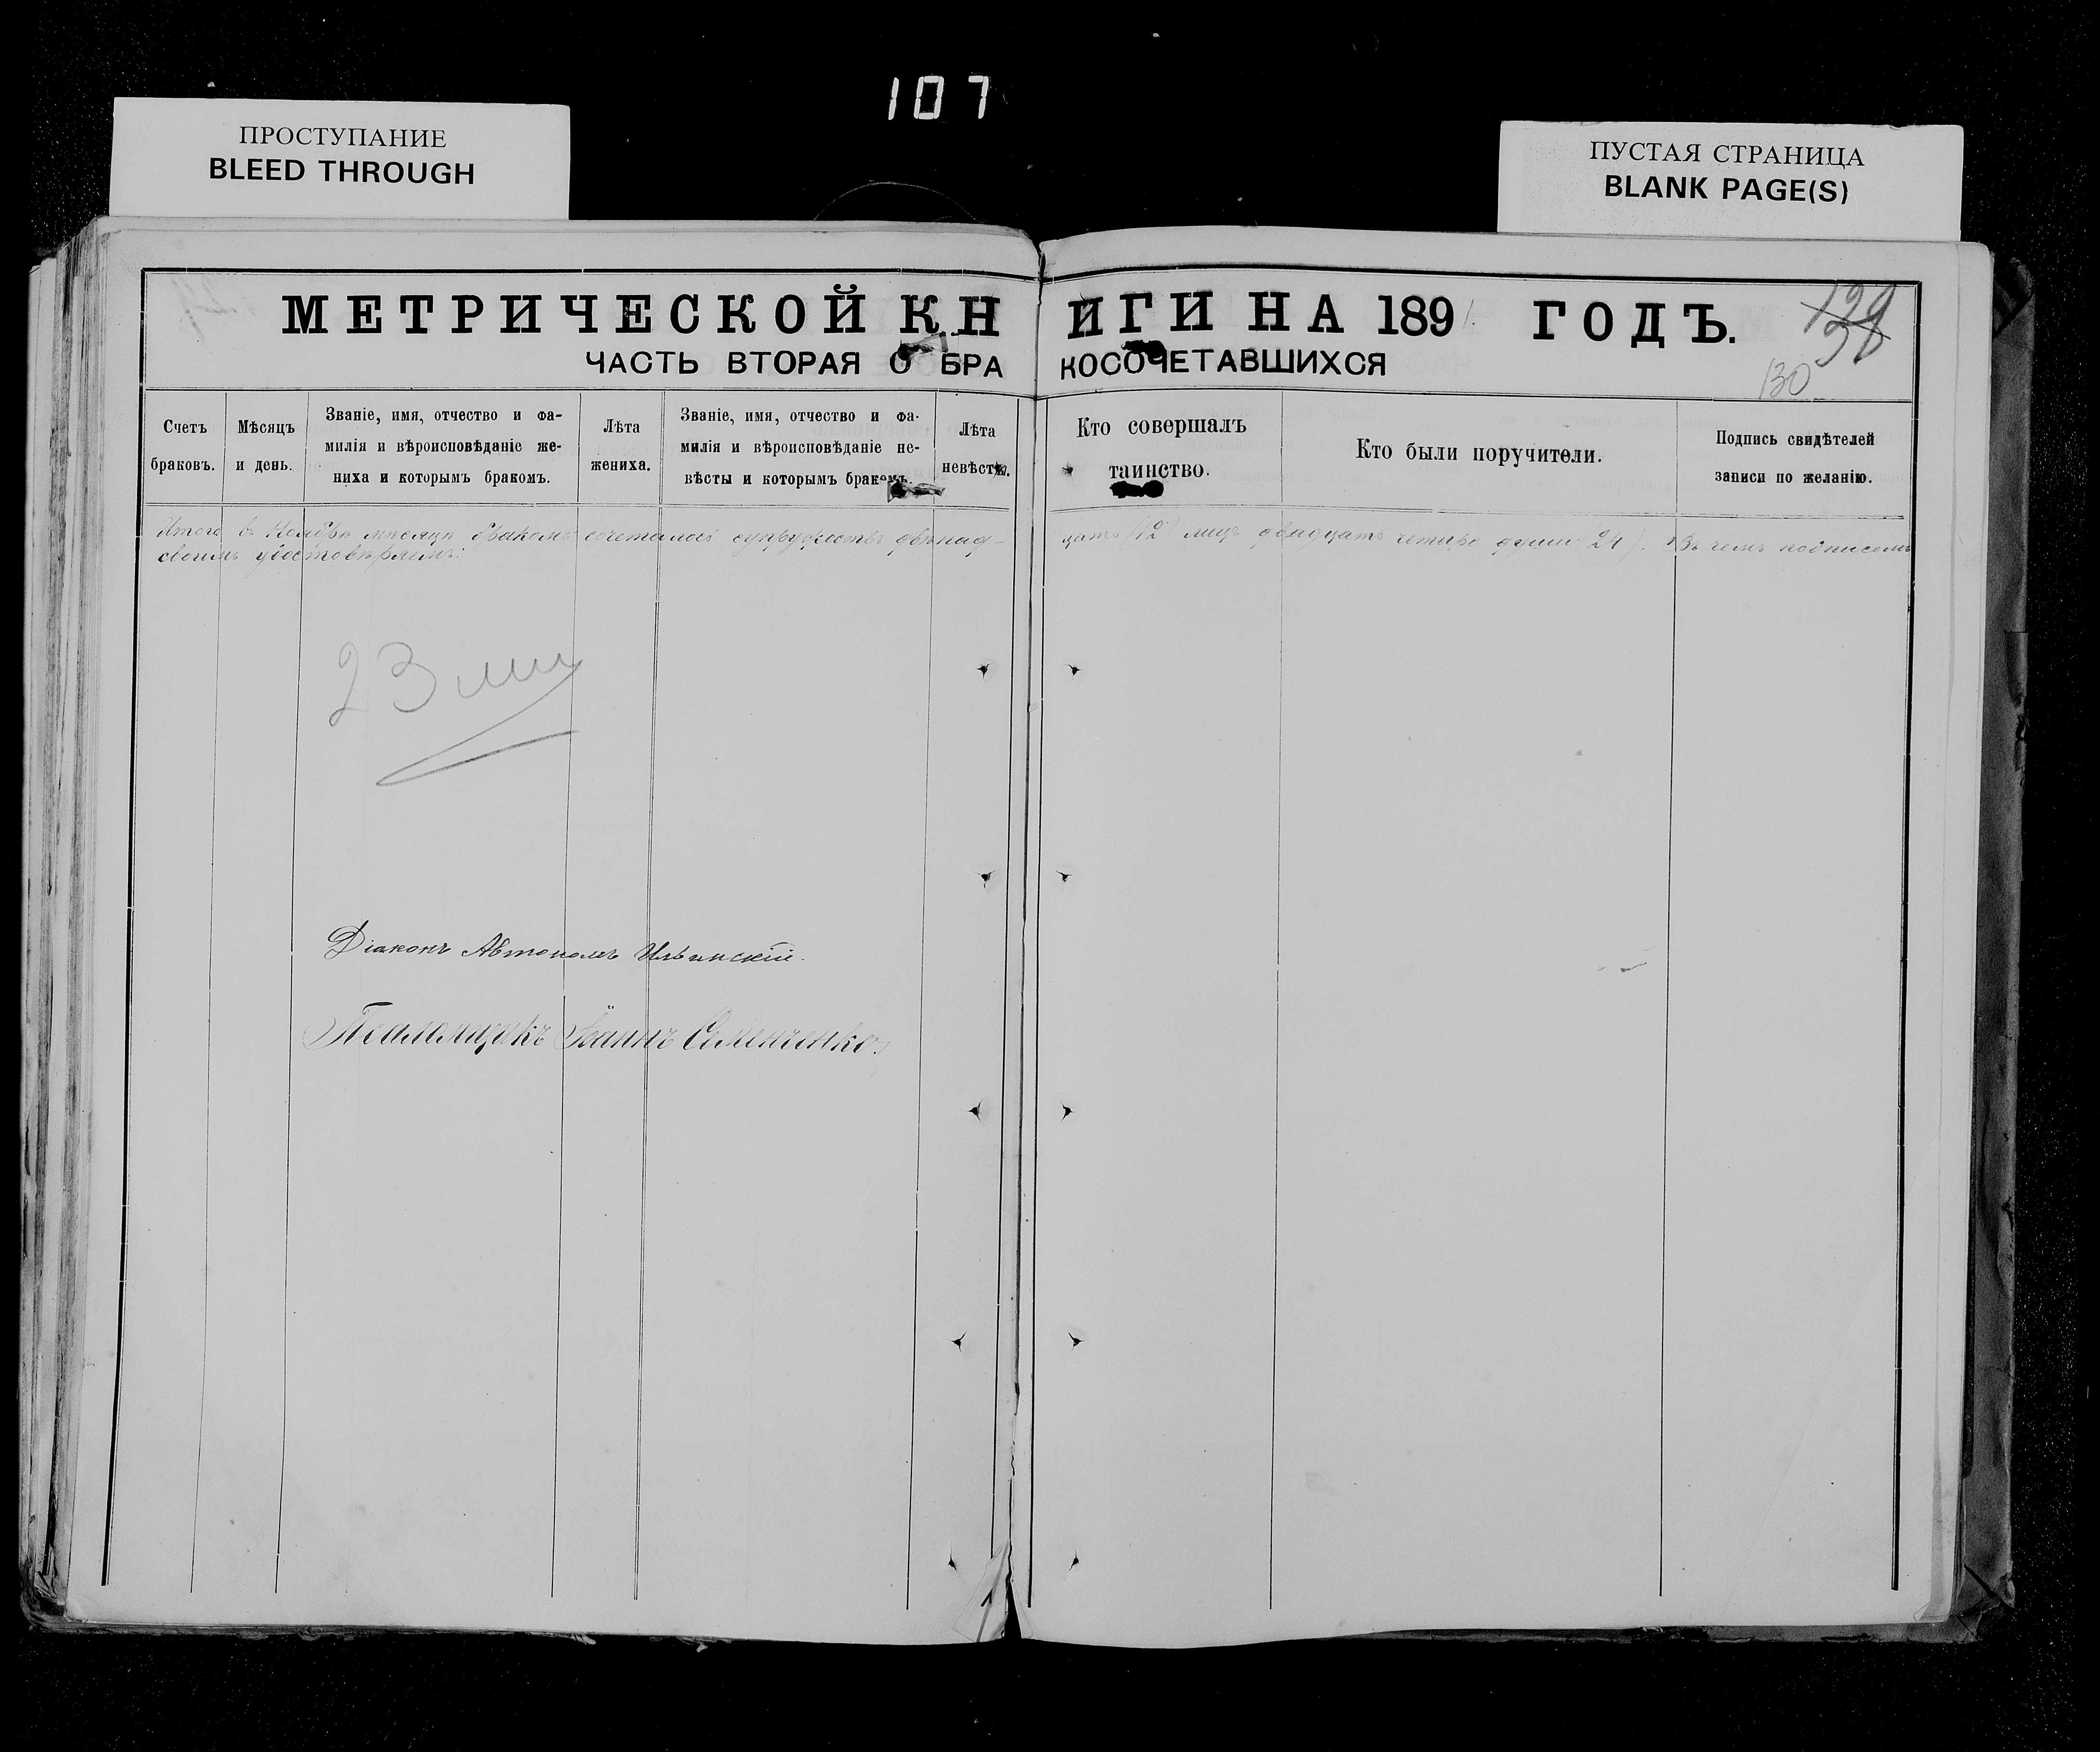 107
ПРОСТУПАНИЕ
BLEED THROUGH
ПУСТАЯ СТРАНИЦА
BLANK PAGE(S)
МЕТРИЧЕСКОЙ КНИГИ НА 1891 ГОДЪ.
ЧАСТЬ ВТОРАЯ О БРАКОСОЧЕТАВШИХСЯ
130
Счетъ
браковъ.
Мѣсяцъ
и день.
Званіе, имя, отчество и фа-
милія и вѣроисповѣданіе же-
ниха и которымъ бракомъ.
Лѣта
жениха.
Званіе, имя, отчество и фа-
милія и вѣроисповѣданіе не-
вѣсты и которымъ бракомъ.
Лѣта
невѣсты.
Кто совершалъ
таинство.
Кто были поручители.
Подпись свидѣтелей
записи по желанію.
Итого въ Ноябрѣ мѣсяцѣ бракомъ сочеталось супружествъ двѣнад-
цать (12) лицъ двадцать четыре души 24). Въ чемъ подписомъ
своимъ удостовѣряемъ:
23
Діаконъ Автономъ Ильинскій.
Псаломщикъ Іоаннъ Семенченко.